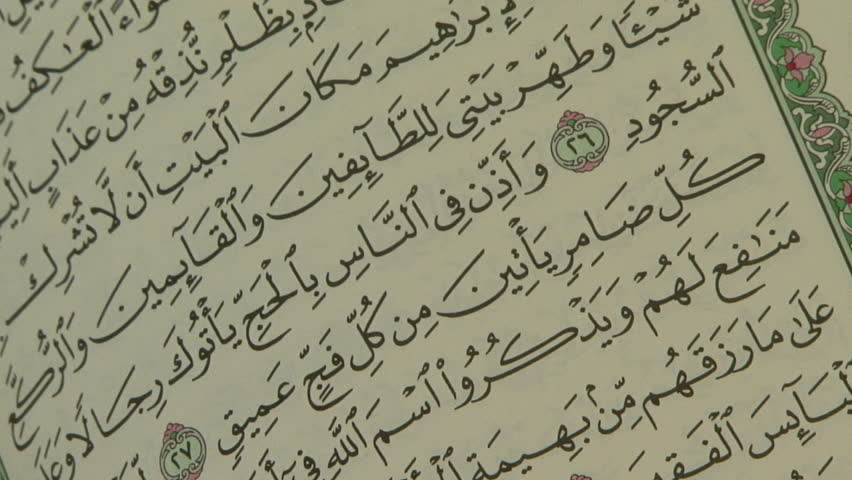 ٱلْعَـٰكِفُ
بِظُلْمٍ نُّذِقْهُ مِنْ عَذَابٍ
لِإِبْرَٰهِيمَ مَكَانَ ٱلْبَيْتِ أَن لَّا تُشْرِكْ
شَيْـًٔا وَطَهِّرْ بَيْتِىَ لِلطَّآئِفِينَ وَٱلْقَآئِمِينَ وَٱلرُّكَّعِ
ٱلسُّجُودِ ٢٦ وَأَذِّن فِى ٱلنَّاسِ بِٱلْحَجِّ يَأْتُوكَ رِجَالًا
كُلِّ ضَامِرٍ يَأْتِينَ مِن كُلِّ فَجٍّ عَمِيقٍ ٢٧
مَنَـٰفِعَ لَهُمْ وَيَذْكُرُوا۟ ٱسْمَ ٱللَّهِ فِىٓ
عَلَىٰ مَا رَزَقَهُم مِّنۢ بَهِيمَةِ
ٱلْبَآئِسَ